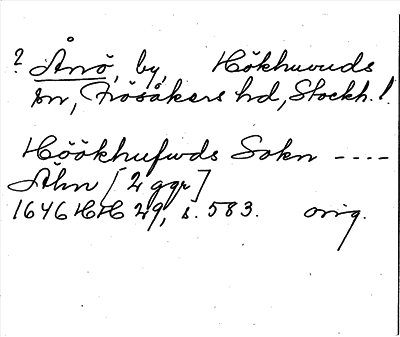 ? Årnö, by, Hökhuvuds
sn, Frösåkers hd, Stockh. l.
Höökhufwds Sokn ----
Åhn [2 ggr]
1646 HH 29, s. 583. orig.